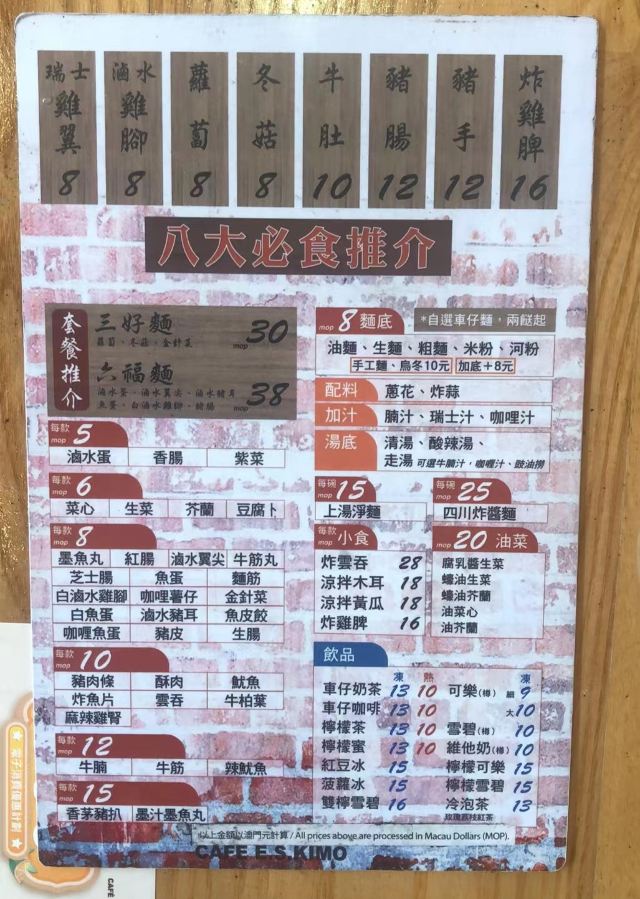 瑞士雞翼 8
滷水雞腳 8
蘿蔔 8
冬菇 8
牛肚 10
豬腸 12
豬手 12
炸雞脾 16
八大必食推介
套餐推介
三好麵 mop 30
蘿蔔、冬菇、金針菜
六福麵 mop 38
滷水蛋、滷水翼尖、滷水豬耳
魚蛋、白滷水雞腳、豬腸
每款 mop 5
滷水蛋 香腸 紫菜
每款 mop 6
菜心 生菜 芥蘭 豆腐卜
每款 mop 8
墨魚丸 紅腸 滷水翼尖 牛筋丸
芝士腸 魚蛋 麵筋
白滷水雞腳 咖哩薯仔 金針菜
白魚蛋 滷水豬耳 魚皮餃
咖哩魚蛋 豬皮 生腸
每款 mop 10
豬肉條 酥肉 魷魚
炸魚片 雲吞 牛柏葉
麻辣雞腎
每款 mop 12
牛腩 牛筋 辣魷魚
每款 mop 15
香茅豬扒 墨汁墨魚丸
mop 8 麵底 *自選車仔麵，兩餸起
油麵、生麵、粗麵、米粉、河粉
手工麵、烏冬10元 加底+8元
配料 蔥花、炸蒜
加汁 腩汁、瑞士汁、咖哩汁
湯底 清湯、酸辣湯、
走湯 可選牛腩汁，咖哩汁、豉油撈
每碗 mop 15
上湯淨麵
每碗 mop 25
四川炸醬麵
每款 mop 小食
炸雲吞 28
涼拌木耳 18
涼拌黃瓜 18
炸雞脾 16
mop 20 油菜
腐乳醬生菜
蠔油生菜
蠔油芥蘭
油菜心
油芥蘭
飲品
凍 熱 凍
車仔奶茶 13 10 可樂(樽) 細 9
車仔咖啡 13 10 大 10
檸檬茶 13 10 雪碧(樽) 10
檸檬蜜 13 10 維他奶(樽) 10
紅豆冰 15 檸檬可樂 15
菠蘿冰 15 檸檬雪碧 15
雙檸雪碧 16 冷泡茶 13
玫瑰荔枝紅茶
以上金額以澳門元計算 / All prices above are processed in Macau Dollars (MOP).
CAFE E.S.KIMO
電子消費優惠計劃
CAFÉ